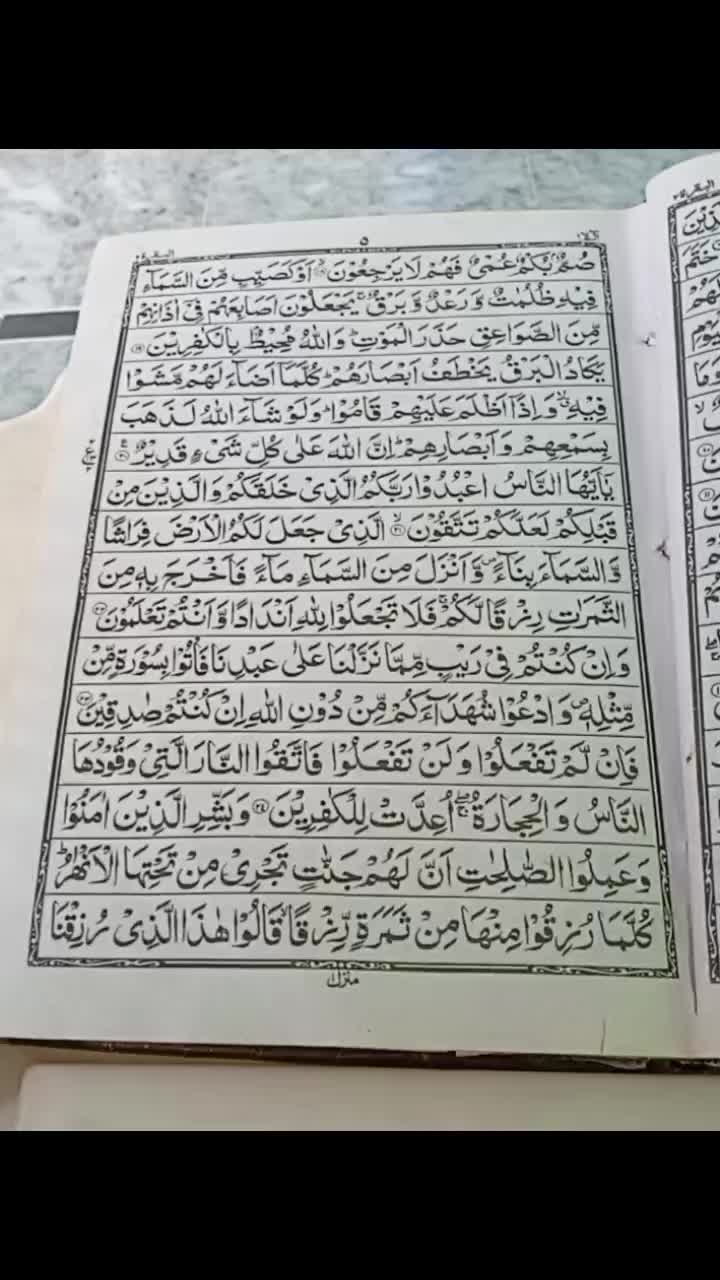 البقرة ٢
٥
الٓمّٓ ١
صُمٌّۢ بُكْمٌ عُمْیٌ فَهُمْ لَا یَرْجِعُوْنَ ۙ﴿۱۸﴾ اَوْ كَصَیِّبٍ مِّنَ السَّمَآءِ
فِیْهِ ظُلُمٰتٌ وَّ رَعْدٌ وَّ بَرْقٌ ۚ یَجْعَلُوْنَ اَصَابِعَهُمْ فِیْۤ اٰذَانِهِمْ
مِّنَ الصَّوَاعِقِ حَذَرَ الْمَوْتِ ؕ وَ اللّٰهُ مُحِیْطٌۢ بِالْكٰفِرِیْنَ ﴿۱۹﴾
یَكَادُ الْبَرْقُ یَخْطَفُ اَبْصَارَهُمْ ؕ كُلَّمَاۤ اَضَآءَ لَهُمْ مَّشَوْا
فِیْهِ ۙۗ وَ اِذَاۤ اَظْلَمَ عَلَیْهِمْ قَامُوْا ؕ وَ لَوْ شَآءَ اللّٰهُ لَذَهَبَ
بِسَمْعِهِمْ وَ اَبْصَارِهِمْ ؕ اِنَّ اللّٰهَ عَلٰی كُلِّ شَیْءٍ قَدِیْرٌ ﴿۲۰﴾ ع
یٰۤاَیُّهَا النَّاسُ اعْبُدُوْا رَبَّكُمُ الَّذِیْ خَلَقَكُمْ وَ الَّذِیْنَ مِنْ
قَبْلِكُمْ لَعَلَّكُمْ تَتَّقُوْنَ ۙ﴿۲۱﴾ الَّذِیْ جَعَلَ لَكُمُ الْاَرْضَ فِرَاشًا
وَّ السَّمَآءَ بِنَآءً ۪ وَّ اَنْزَلَ مِنَ السَّمَآءِ مَآءً فَاَخْرَجَ بِهٖ مِنَ
الثَّمَرٰتِ رِزْقًا لَّكُمْ ۚ فَلَا تَجْعَلُوْا لِلّٰهِ اَنْدَادًا وَّ اَنْتُمْ تَعْلَمُوْنَ ﴿۲۲﴾
وَ اِنْ كُنْتُمْ فِیْ رَیْبٍ مِّمَّا نَزَّلْنَا عَلٰی عَبْدِنَا فَاْتُوْا بِسُوْرَةٍ مِّنْ
مِّثْلِهٖ ۪ وَ ادْعُوْا شُهَدَآءَكُمْ مِّنْ دُوْنِ اللّٰهِ اِنْ كُنْتُمْ صٰدِقِیْنَ ﴿۲۳﴾
فَاِنْ لَّمْ تَفْعَلُوْا وَ لَنْ تَفْعَلُوْا فَاتَّقُوا النَّارَ الَّتِیْ وَ قُوْدُهَا
النَّاسُ وَ الْحِجَارَةُ ۖۚ اُعِدَّتْ لِلْكٰفِرِیْنَ ﴿۲۴﴾ وَ بَشِّرِ الَّذِیْنَ اٰمَنُوْا
وَ عَمِلُوا الصّٰلِحٰتِ اَنَّ لَهُمْ جَنّٰتٍ تَجْرِیْ مِنْ تَحْتِهَا الْاَنْهٰرُ ؕ
كُلَّمَا رُزِقُوْا مِنْهَا مِنْ ثَمَرَةٍ رِّزْقًا ۙ قَالُوْا هٰذَا الَّذِیْ رُزِقْنَا
منزل ١